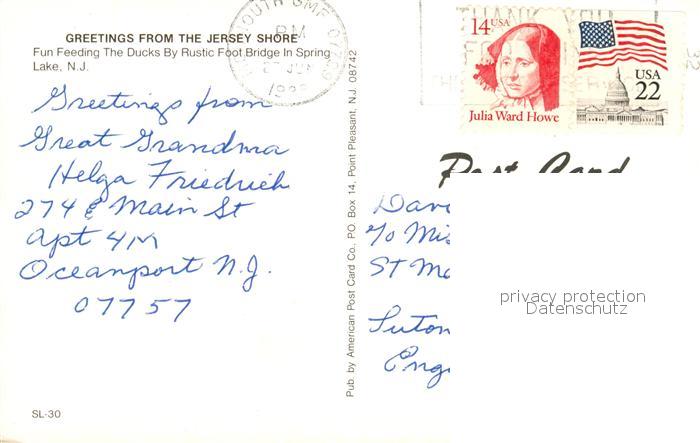 GREETINGS FROM THE JERSEY SHORE
Fun Feeding The Ducks By Rustic Foot Bridge In Spring
Lake, N.J.
Greetings from
Great Grandma
Helga Friedrich
274 E Main St
Apt 4M
Oceanport N.J.
07757
SL-30
Pub. by American Post Card Co., P.O. Box 14, Point Pleasant, N.J. 08742
OUTH GMF 077
PM
THANK YOU
14 USA
Julia Ward Howe
USA
22
Post Card
Davi
c/o Mis
ST Ma
Suton
Eng
privacy protection
Datenschutz